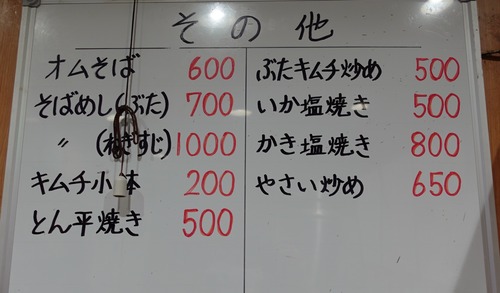 その他
オムそば 600
そばめし(ぶた) 700
〃 (ねぎすじ) 1000
キムチ小 200
とん平焼き 500
ぶたキムチ炒め 500
いか塩焼き 500
かき塩焼き 800
やさい炒め 650